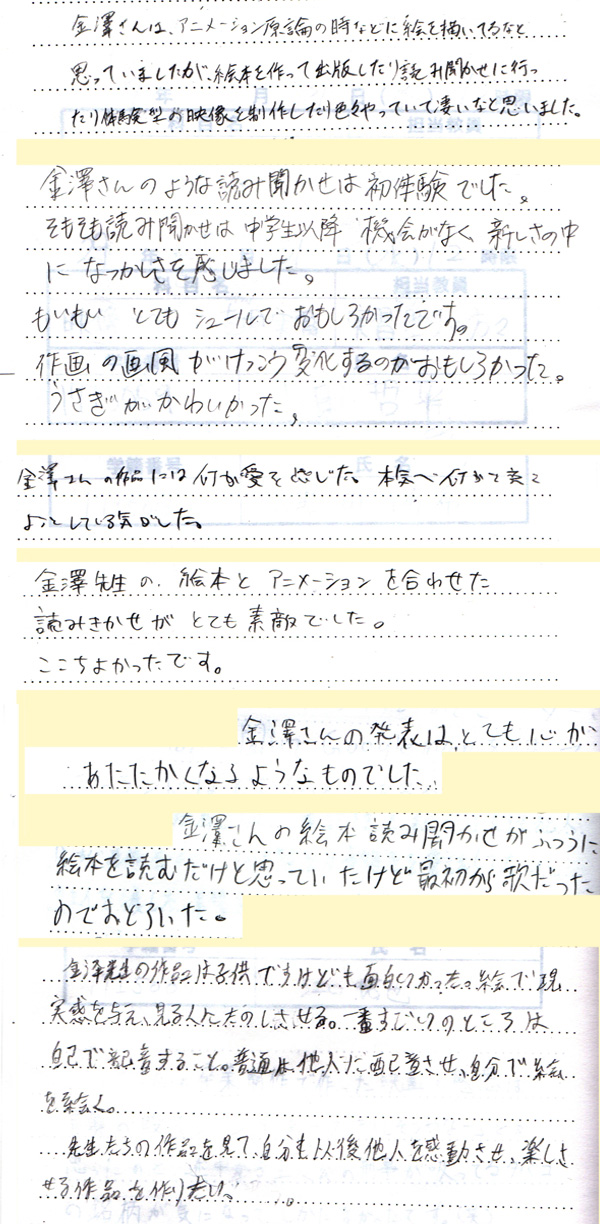 金澤さんは、アニメーション原論の時などに絵を描いてるなと
思っていましたが、絵本を作って出版したり読み聞かせに行っ
たり体験型の映像を制作したり色々やっていて凄いなと思いました。
金澤さんのような読み聞かせは初体験でした。
そもそも読み聞かせは中学生以降機会がなく、新しさの中
になつかしさを感じました。
もいもい とてもシュールでおもしろかったです。
作画の画風がけっこう変化するのがおもしろかった。
うさぎがかわいかった。
金澤さんの作品には何か愛を感じた。本気で何かを
ようとしている気がした。
金澤先生の、絵本とアニメーションを合わせた
読みきかせがとても素敵でした。
ここちよかったです。
金澤さんの発表は、とても心が
あたたかくなるようなものでした。
金澤さんの絵本読み聞かせがふつうに
絵本を読むだけと思っていたけど最初から歌だった
のでおどろいた。
金澤先生の作品は子供ですけども面白しかった。絵で現
実感を与え、見る人にたのしさせる。一番すごいのところは
自己で配置すること。普通は他人に配置させ、自分で絵
を絵く。
先生たちの作品を見て、自分も以後他人を感動させ、楽しさ
せる作品を作りたい。
科目名
担当教員
学籍番号
氏名